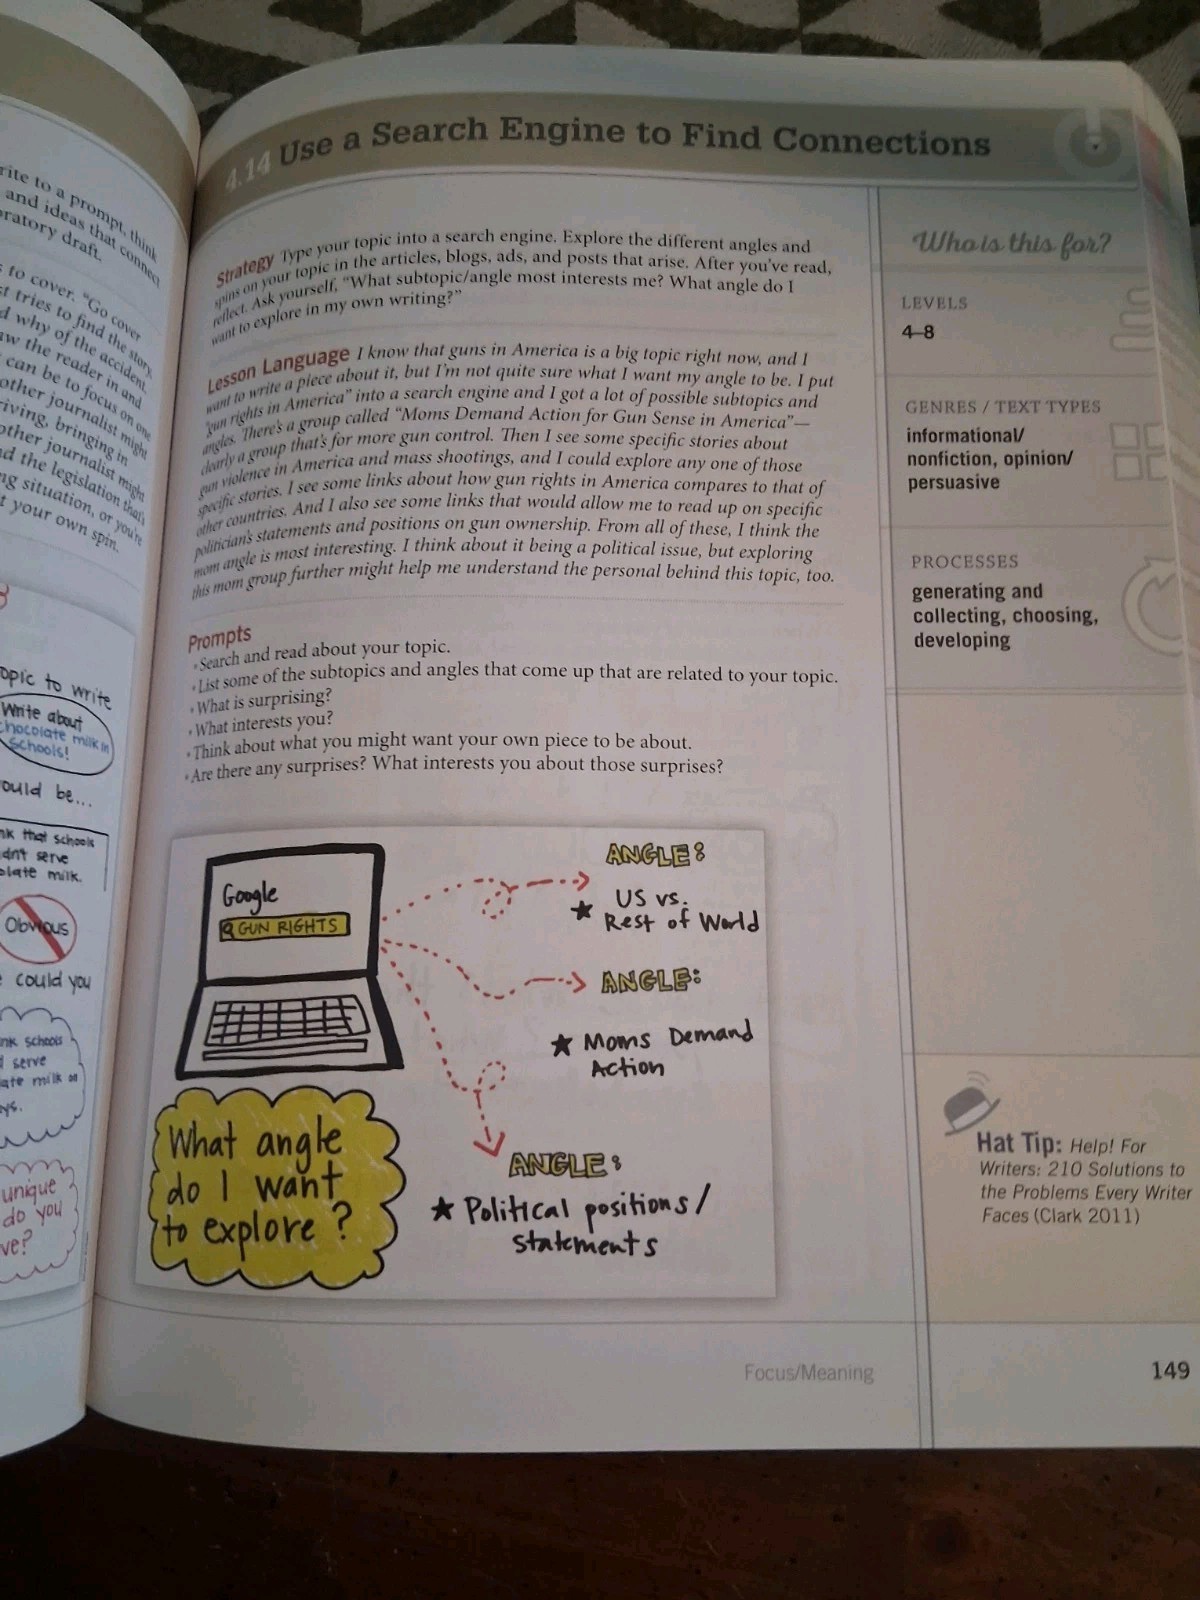 rite to a prompt, think
and ideas that connect
oratory draft.
to cover. "Go cover
st tries to find the story,
d why of the accident.
aw the reader in and
can be to focus on one
other journalist might
riving, bringing in
other journalist might
nd the legislation that's
ng situation, or you're
t your own spin.
opic to write
Write about
chocolate milk in
schools!
ould be...
nk that schools
dn't serve
olate milk.
Obvious
could you
nk schools
d serve
late milk on
ys.
unique
do you
ve?
4.14 Use a Search Engine to Find Connections
Strategy Type your topic into a search engine. Explore the different angles and
spins on your topic in the articles, blogs, ads, and posts that arise. After you've read,
reflect. Ask yourself, "What subtopic/angle most interests me? What angle do I
want to explore in my own writing?"
Lesson Language I know that guns in America is a big topic right now, and I
want to write a piece about it, but I'm not quite sure what I want my angle to be. I put
"gun rights in America" into a search engine and I got a lot of possible subtopics and
angles. There's a group called "Moms Demand Action for Gun Sense in America"—
clearly a group that's for more gun control. Then I see some specific stories about
gun violence in America and mass shootings, and I could explore any one of those
specific stories. I see some links about how gun rights in America compares to that of
other countries. And I also see some links that would allow me to read up on specific
politician's statements and positions on gun ownership. From all of these, I think the
mom angle is most interesting. I think about it being a political issue, but exploring
this mom group further might help me understand the personal behind this topic, too.
Prompts
• Search and read about your topic.
• List some of the subtopics and angles that come up that are related to your topic.
• What is surprising?
• What interests you?
• Think about what you might want your own piece to be about.
• Are there any surprises? What interests you about those surprises?
Google
GUN RIGHTS
ANGLE:
★ US vs.
Rest of World
ANGLE:
★ Moms Demand
Action
ANGLE:
★ Political positions/
statements
What angle
do I want
to explore?
Who is this for?
LEVELS
4–8
GENRES / TEXT TYPES
informational/
nonfiction, opinion/
persuasive
PROCESSES
generating and
collecting, choosing,
developing
Hat Tip: Help! For
Writers: 210 Solutions to
the Problems Every Writer
Faces (Clark 2011)
Focus/Meaning
149